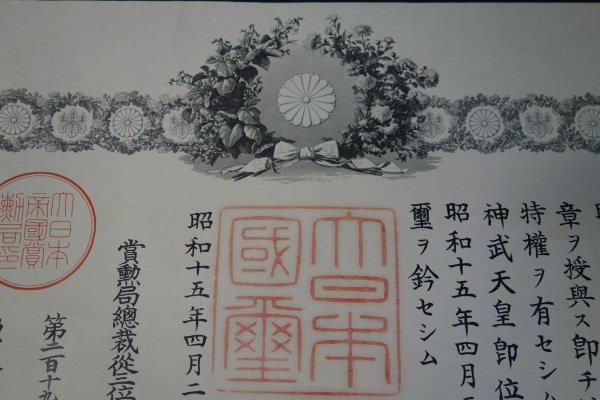 章ヲ授與ス卽チ
特權ヲ有セシム
神武天皇卽位
昭和十五年四月
璽ヲ鈐セシム
大日本
國璽
昭和十五年四月二
賞勲局總裁從三位
第二百十九
大日本
帝國賞
勲局印